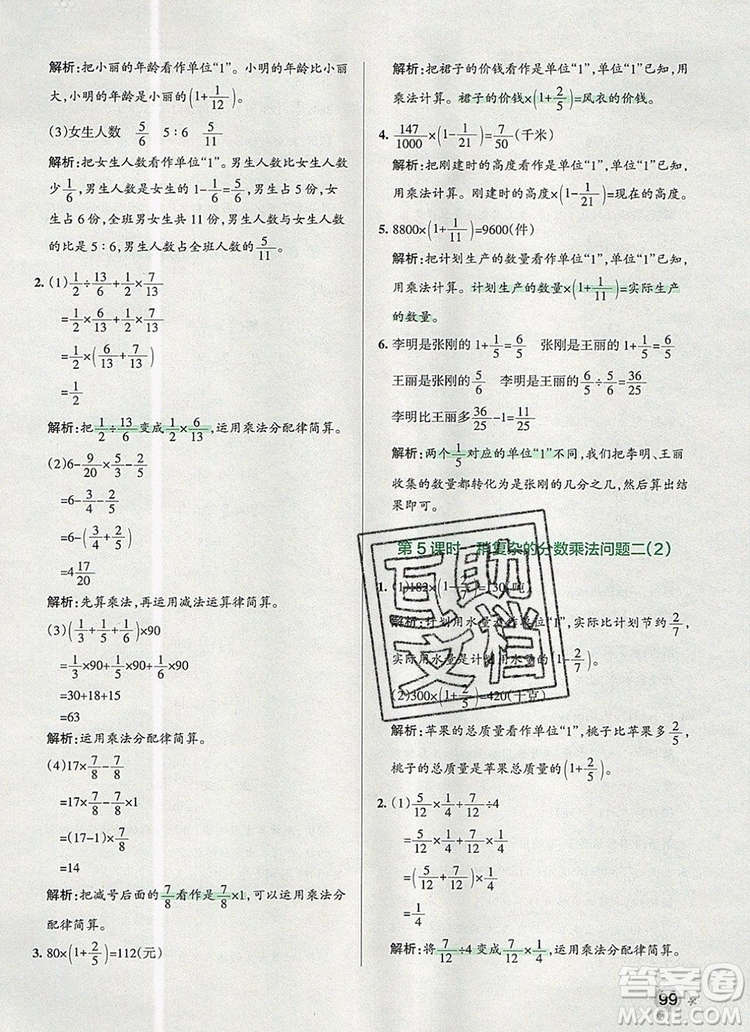 解析:把小丽的年龄看作单位“1”。小明的年龄比小丽
大,小明的年龄是(1+1/12)。
(3)女生人数 5/6 5∶6 5/11
解析:把女生人数看作单位“1”。男生人数比女生人数
少1/6,男生人数是女生人数的1-1/6=5/6,男生占5份,女
生占6份,全班男女生共11份,男生人数与女生人数
的比是5∶6,男生人数占全班人数的5/11。
2.(1)1/2÷13/6+1/2×7/13
=1/2×6/13+1/2×7/13
=1/2×(6/13+7/13)
=1/2
解析:把1/2÷13/6变成1/2×6/13,运用乘法分配律简算。
(2)6-9/20×5/3-2/5
=6-3/4-2/5
=6-(3/4+2/5)
=4 17/20
解析:先算乘法,再运用减法运算律简算。
(3)(1/3+1/5+1/6)×90
=1/3×90+1/5×90+1/6×90
=30+18+15
=63
解析:运用乘法分配律简算。
(4)17×7/8-7/8
=17×7/8-7/8×1
=(17-1)×7/8
=14
解析:把减号后面的7/8看作是7/8×1,可以运用乘法分
配律简算。
3. 80×(1+2/5)=112(元)
解析:把裙子的价钱看作是单位“1”已知,用
乘法计算。裙子的价钱×(1+2/5)=风衣的价钱。
4. 147/1000×(1-1/21)=7/50(千米)
解析:把刚建时的高度看作单位“1”已知,用
乘法计算。刚建时的高度×(1-1/21)=现在的高度。
5. 8800×(1+1/11)=9600(件)
解析:把计划生产的数量看作单位“1”已知,
用乘法计算。计划生产的数量×(1+1/11)=实际生产
的数量。
6. 李明是张刚的1+1/5=6/5 张刚是王丽的1+1/5=6/5
王丽是张刚的5/6 李明是王丽的6/5÷5/6=36/25
李明比王丽多36/25-1=11/25
解析:两个1/5对应的单位“1”不同,我们把李明、王丽
收集的数量都转化为是张刚的几分之几,然后算出结
果即可。
第5课时 稍复杂的分数乘法问题二(2)
1.(1)182×(1-2/7)=130(吨)
解析:计划用水量看作单位“1”,实际比计划节约2/7,
实际用水量是计划用水量的(1-2/7)。
(2)300×(1+2/5)=420(千克)
解析:苹果的总质量看作单位“1”,桃子比苹果多2/5,
桃子的总质量是苹果总质量的(1+2/5)。
2.(1)5/12×1/4+7/12÷4
=5/12×1/4+7/12×1/4
=(5/12+7/12)×1/4
=1/4
解析:将7/12÷4变成7/12×1/4,运用乘法分配律简算。
互助
文档
答案圈
99
MXQE.COM